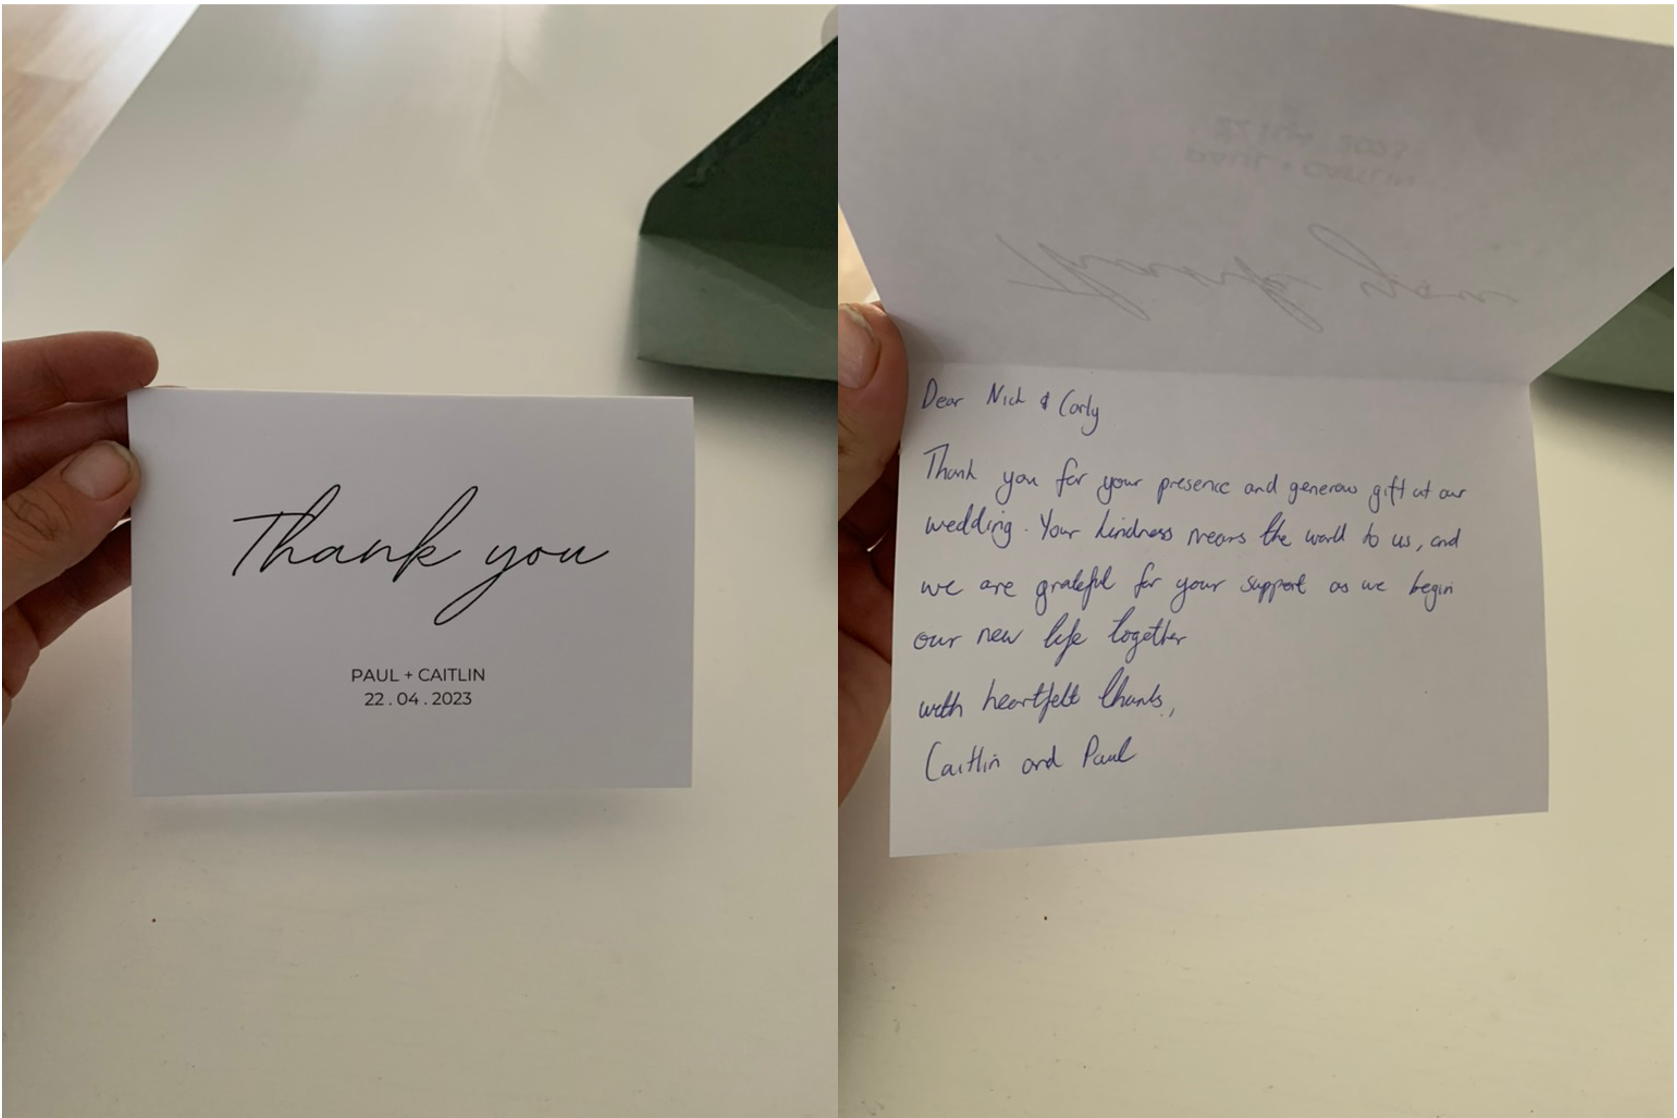 Thank you
PAUL + CAITLIN
22 . 04 . 2023
Dear Nick & Carly
Thank you for your presence and generous gift at our
wedding. Your kindness means the world to us, and
we are grateful for your support as we begin
our new life together
with heartfelt thanks,
Caitlin and Paul